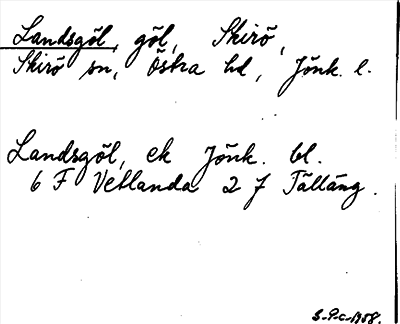 Landsgöl, göl, Skirö,
Skirö sn, Östra hd, Jönk. l.
Landsgöl, ek Jönk. bl.
6 F Vetlanda 2 J Tälläng.